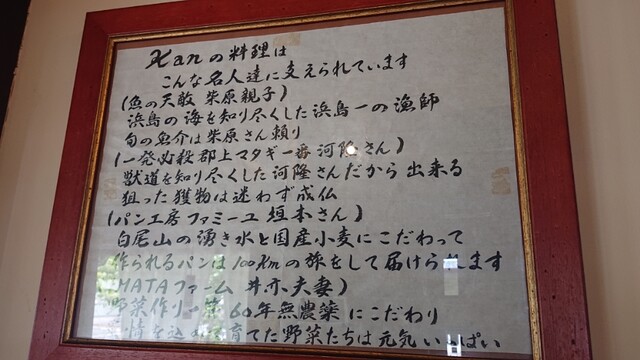 Xanの料理は
こんな名人達に支えられています
(魚の天敵 柴原親子)
浜島の海を知り尽くした浜島一の漁師
旬の魚介は柴原さん頼り
(一発必殺郡上マタギ一番 河隆さん)
獣道を知り尽くした河隆さんだから出来る
狙った獲物は迷わず成仏
(パン工房ファミーユ 垣本さん)
白尾山の湧き水と国産小麦にこだわって
作られるパンは100Kmの旅をして届けられます
HATAファーム 井亦夫妻)
野菜作り一筋60年無農薬にこだわり
情を込めて育てた野菜たちは元気いっぱい